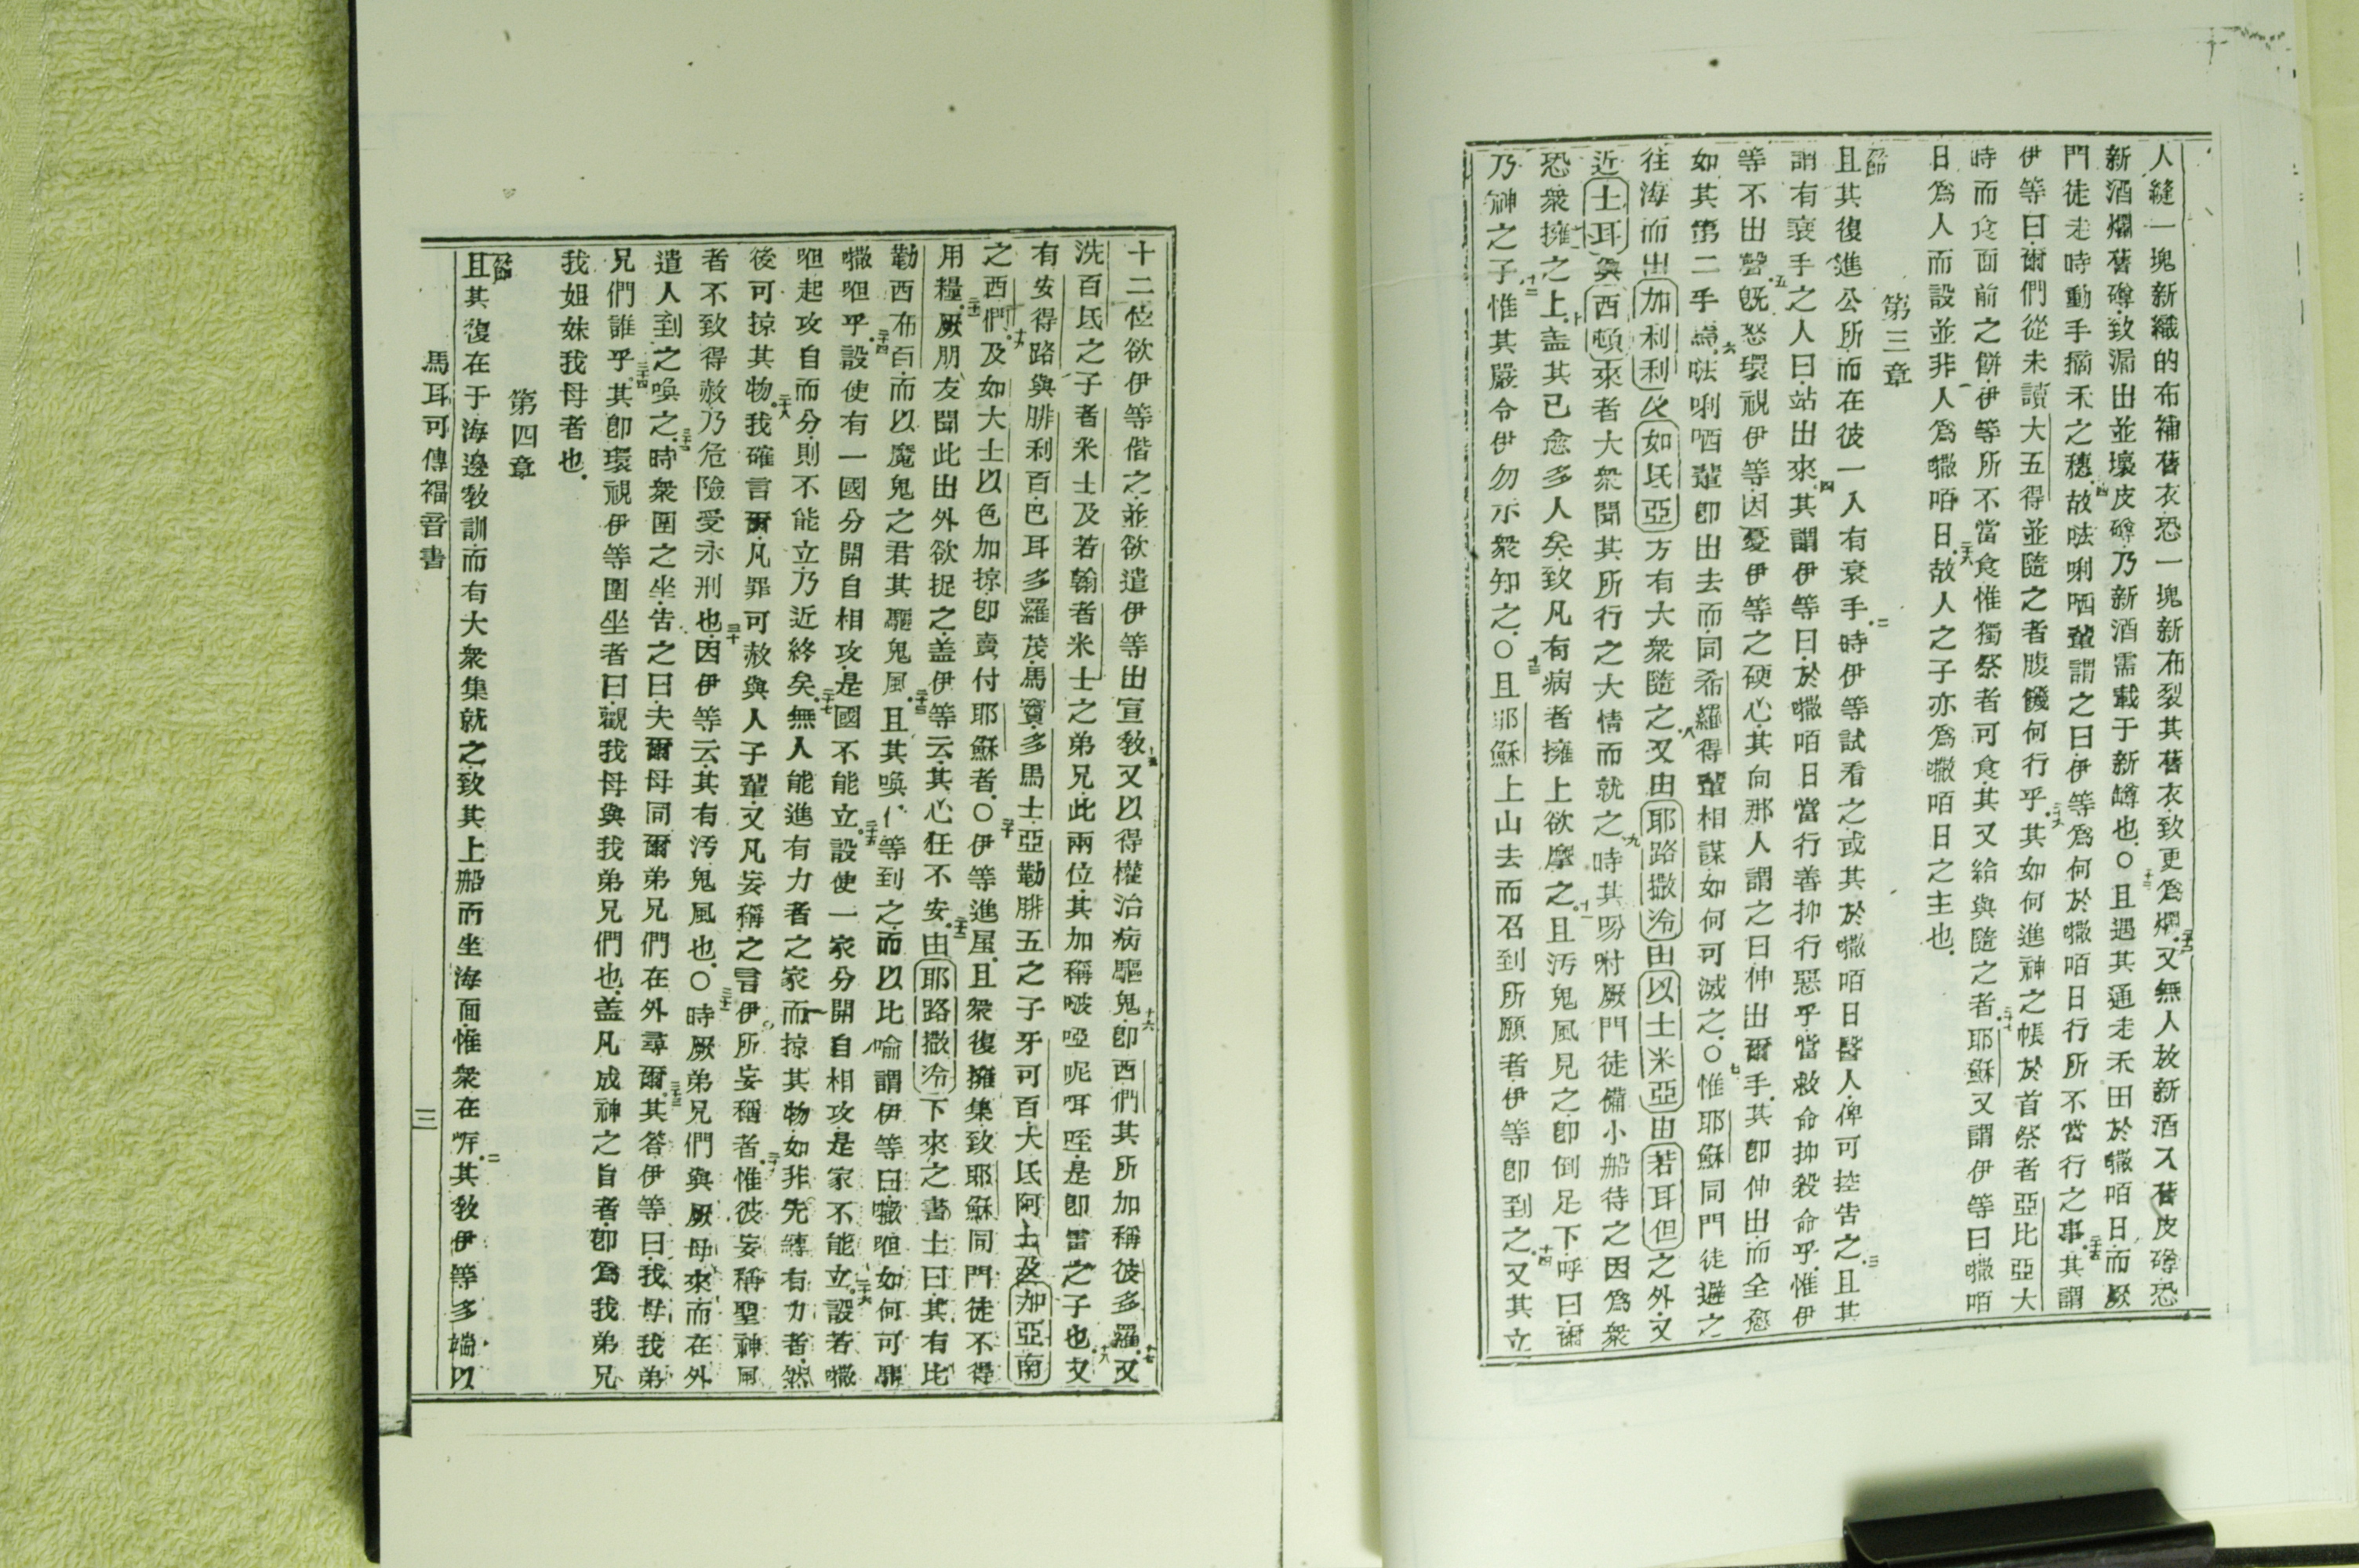 人縫一塊新織的布補舊衣恐一塊新布裂其舊衣致更爲爛又無人放新酒入舊皮罇恐
新酒爛舊罇致漏出並壞皮罇乃新酒需載于新罇也○且遇其通走禾田於囉咟日而厥
門徒走時動手摘禾之穗故㖀唎哂輩謂之曰伊等爲何於㘔咟日行所不當行之事其謂
伊等曰爾們從未讀大五得並隨之者腹饑何行乎其如何進神之帳於首祭者亞比亞大
時而食面前之餅伊等所不當食惟獨祭者可食其又給與隨之者耶穌又謂伊等曰㘔咟
日爲人而設並非人爲㘔咟日故人之子亦爲㘔咟日之主也
第三章
且其復進公所而在彼一人有衰手時伊等試看之或其於㘔咟日醫人俾可控告之且其
謂有衰手之人曰站出來其謂伊等曰於㘔咟日當行善抑行惡乎當救命抑殺命乎惟伊
等不出聲旣怒環視伊等因憂伊等之硬心其向那人謂之曰伸出爾手其卽伸出而全愈
如其第二手焉㖀唎哂輩卽出去而同希羅得輩相謀如何可滅之○惟耶穌同門徒避之
往海而出加利利及如氐亞方有大衆隨之又由耶路撒冷由以士米亞由若耳但之外又
近士耳與西頓來者大衆聞其所行之大情而就之時其吩咐厥門徒備小船待之因爲衆
恐衆擁之上盖其已愈多人矣致凡有病者擁上欲摩之且汚鬼風見之卽倒足下呼曰爾
乃神之子惟其嚴令伊勿示衆知之○且耶穌上山去而召到所願者伊等卽到之又其立
十二位欲伊等偕之並欲遣伊等出宣教又以得權治病驅鬼卽西們其所加稱彼多羅又
洗百氐之子者米士及若翰者米士之弟兄此兩位其加稱啵啞呢咡咥是卽雷之子也又
有安得路與腓利百巴耳多羅茂馬竇多馬士亞勒腓五之子牙可百大氐阿士及加亞南
之西們及如大士以色加掠卽賣付耶穌者○伊等進屋且衆復擁集致耶穌同門徒不得
用糧厥朋友聞此出外欲捉之盖伊等云其心狂不安由耶路撒冷下來之書士曰其有比
勒西布百而以魔鬼之君其驅鬼風且其喚伊等到之而以比喻謂伊等曰㘔呾如何可驅
㘔呾乎設使有一國分開自相攻是國不能立設使一家分開自相攻是家不能立設若㘔
呾起攻自而分則不能立乃近終矣無人能進有力者之家而掠其物如非先縛有力者然
後可掠其物我確言爾凡罪可赦與人子輩又凡妄稱之言伊所妄稱者惟彼妄稱聖神風
者不致得赦乃危險受永刑也因伊等云其有汚鬼風也○時厥弟兄們與厥母來而在外
遣人到之喚之時衆圍之坐告之曰夫爾母同爾弟兄們在外尋爾其答伊等曰我母我弟
兄們誰乎其卽環視伊等圍坐者曰觀我母與我弟兄們也盖凡成神之旨者卽爲我弟兄
我姐妹我母者也
第四章
且其復在于海邊敎訓而有大衆集就之致其上船而坐海面惟衆在岸其敎伊等多端以
馬耳可傳福音書
三